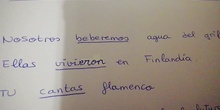 Nosotros beberemos agua del grif
Ellas vivieron en Finlandia
TU cantas flamenco